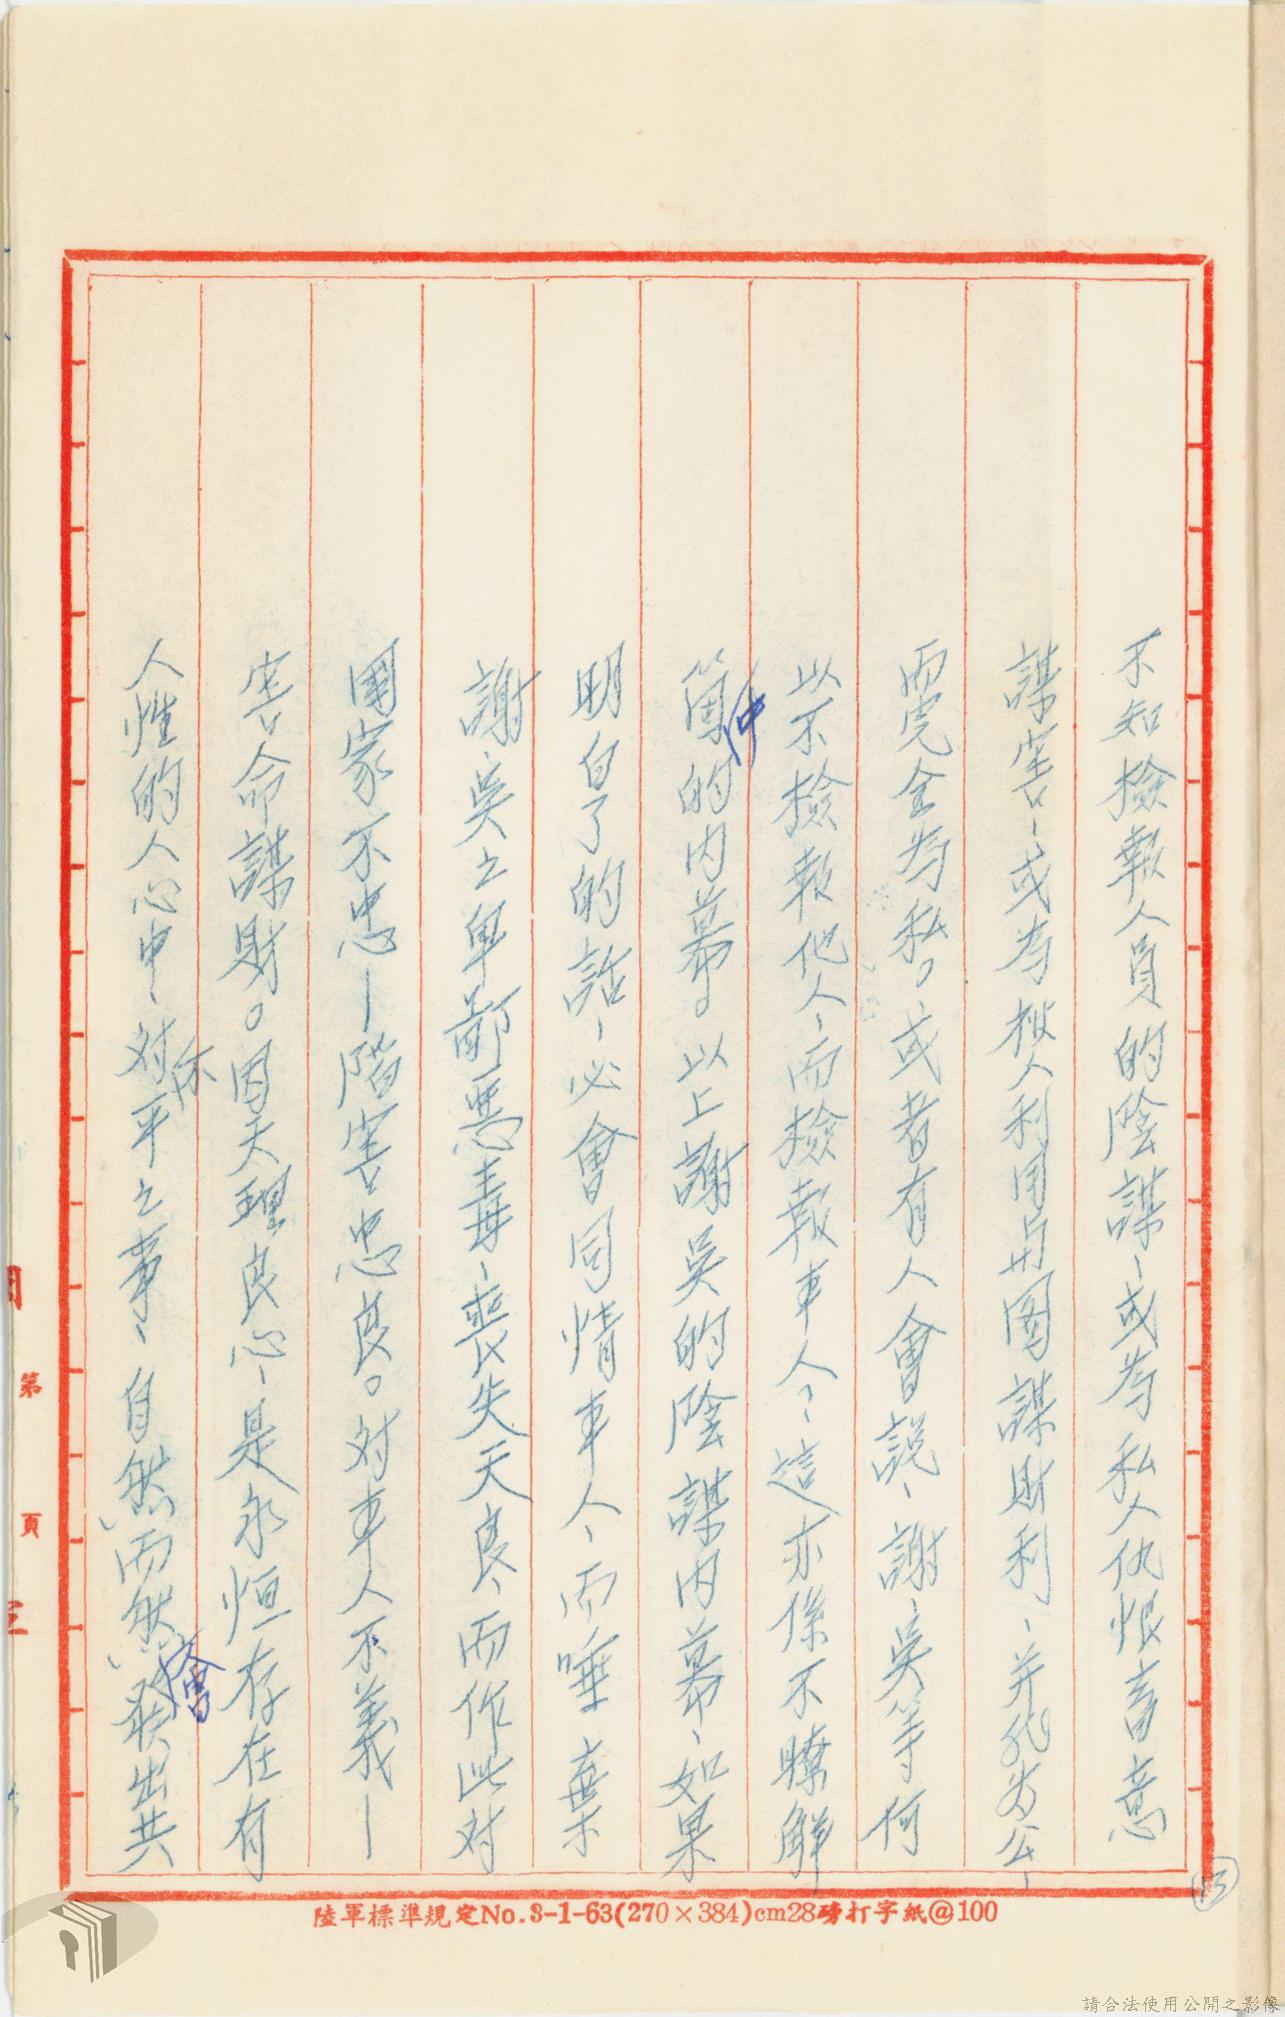 不知檢報人員的陰謀、或為私人仇恨蓄意
謀害、或為被人利用與圖謀財利、并非为公、
而完全為私。或者有人會說、謝、吳等何
以不檢報他人、而檢報車人？、這亦係不瞭解
簡中的內幕。以上謝吳的陰謀內幕、如果
明白了的話、必會同情車人、而唾棄
謝、吳之卑鄙惡毒、喪失天良、而作此对
國家不忠—階害忠良。对車人不義—
害命謀財。因天理良心、是永恒存在有
人性的人心中、对不平之事、自然而然會發出共
13
第 頁
陸軍標準規定No.3-1-63(270×384)cm28磅打字紙@100
請合法使用公開之影像